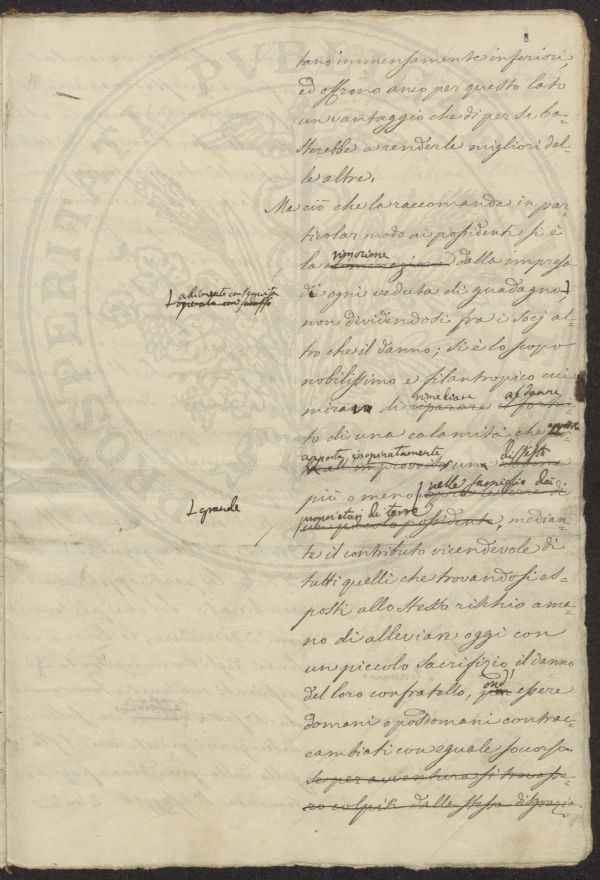 8
tano immensamente inferiori,
ed offrono anco per questo lato
un vantaggio che di per se ba-
sterebbe a renderle migliori del-
le altre.
Ma ciò che le raccomanda in par-
ticolar modo ai possidenti si è
rimozione
la dalla impresa
di ogni veduta di guadagno,
altrimenti conseguita
non dividendosi fra i socj al-
tro che il danno; si è lo scopo
nobilissimo e filantropico cui
rimediare al danno
mirano di riparare
to di una calamità che
apporta inopinatamente dissesto
improvviso una
più o meno nelle famiglie dei
grande
proprietarj di terre
possidente, median-
te il contributo vicendevole di
tutti quelli che trovandosi es-
posti allo stesso rischio ama-
no di alleviare oggi con
un piccolo sacrifizio il danno
ond'
del loro confratello, per essere
domani o posdomani contrac-
cambiati con eguale soccorso.
se per avventura si trovasse-
ro colpiti dalla stessa disgrazia